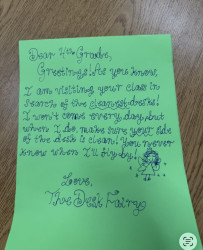 Dear 4th Grade,
Greetings! As you know,
I am visiting your class in
search of the cleanest desks!
I won't come every day, but
when I do make sure your side
of the desk is clean! You never
know when I'll fly by!
Love,
The Desk Fairy